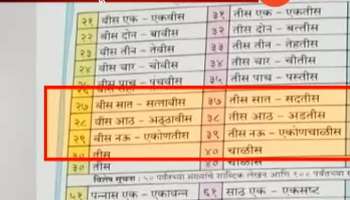 २१ वीस एक - एकवीस ३१ तीस एक - एकतीस
२२ वीस दोन - बावीस ३२ तीस दोन - बत्तीस
२३ वीस तीन - तेवीस ३३ तीस तीन - तेहतीस
२४ वीस चार - चोवीस ३४ तीस चार - चौतीस
वीस पाच - पंचवीस ३५ तीस पाच - पस्तीस
२७ वीस सात - सत्तावीस ३७ तीस सात - सदतीस
२८ वीस आठ - अठ्ठावीस ३८ तीस आठ - अडतीस
२९ वीस नऊ - एकोणतीस ३९ तीस नऊ - एकोणचाळीस
३० तीस ४० चाळीस
३० तीस ४० चाळीस
विशेष सूचना : ५० पर्यंतच्या संख्यांचे शाब्दिक लेखन आणि १०० पर्यंतच्या
५१ पन्नास एक - एकावन्न ६१ साठ एक - एकसष्ट